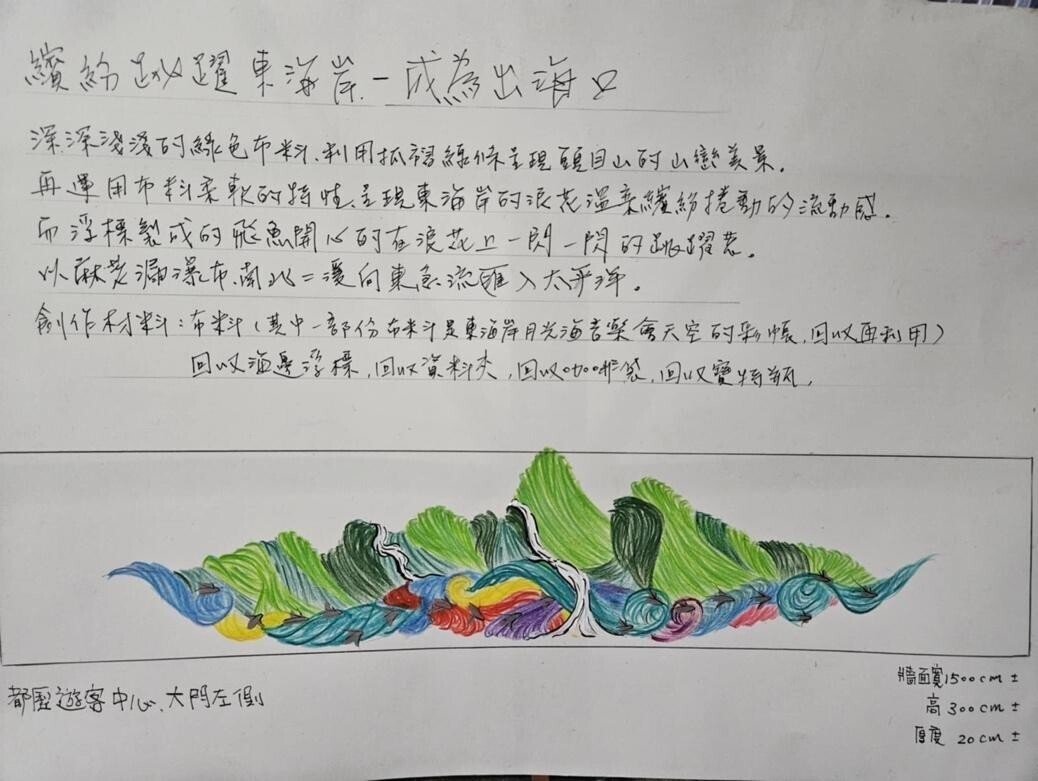 繽紛跳躍東海岸-成為出海口
深深淺淺的綠色布料、利用抓褶線條呈現頭目山的山巒美景。
再運用布料柔軟的特性、呈現東海岸的浪花溫柔繽紛捲動的流動感。
而浮標製成的飛魚開心的在浪花上一閃一閃的跳躍著。
以麻荖漏瀑布、南北二溪向東急流匯入太平洋。
創作材料:布料(其中一部份布料是東海岸月光海音樂會天空的彩帳,回收再利用)
回收海邊浮標,回收資料夾,回收咖啡袋,回收寶特瓶,
都歷遊客中心、大門左側
牆面寬1500cm±
高300cm±
厚度 20cm±